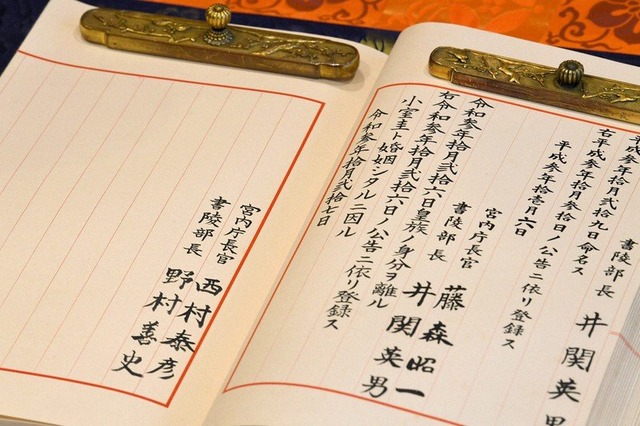 平成参年拾月弐拾九日命名ス
右平成参年拾月参拾日ノ公告ニ依リ登録ス
平成参年拾壱月六日
書陵部長 井関英男
宮内庁長官 藤森昭一
書陵部長 井関英男
令和参年拾月弐拾六日皇族ノ身分ヲ離ル
右令和参年拾月弐拾六日ノ公告ニ依リ登録ス
小室圭ト婚姻シタルニ因ル
令和参年拾月弐拾七日
宮内庁長官 西村泰彦
書陵部長 野村善史